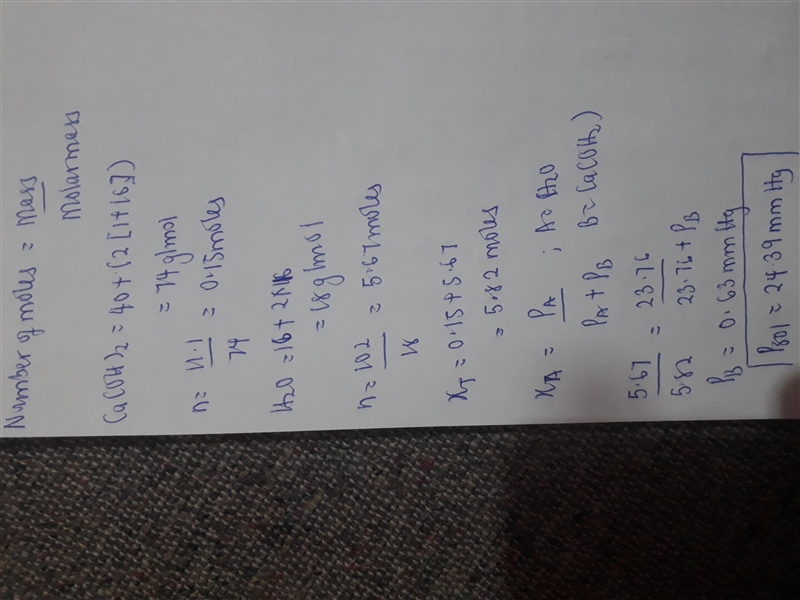 Number of moles = Mass
Molarmass
Ca(OH)2 = 40+(2[1+16])
= 74 g/mol
n = 11.1 = 0.15 moles
74
H2O = 16 + 2
= 18 g/mol
n = 102 = 5.67 moles
18
XT = 0.15 + 5.67
= 5.82 moles
XA = PA ; A = H2O
PA + PB B = Ca(OH)2
5.67 = 23.76
5.82 23.76 + PB
PB = 0.63 mmHg
Psol = 24.39 mm Hg